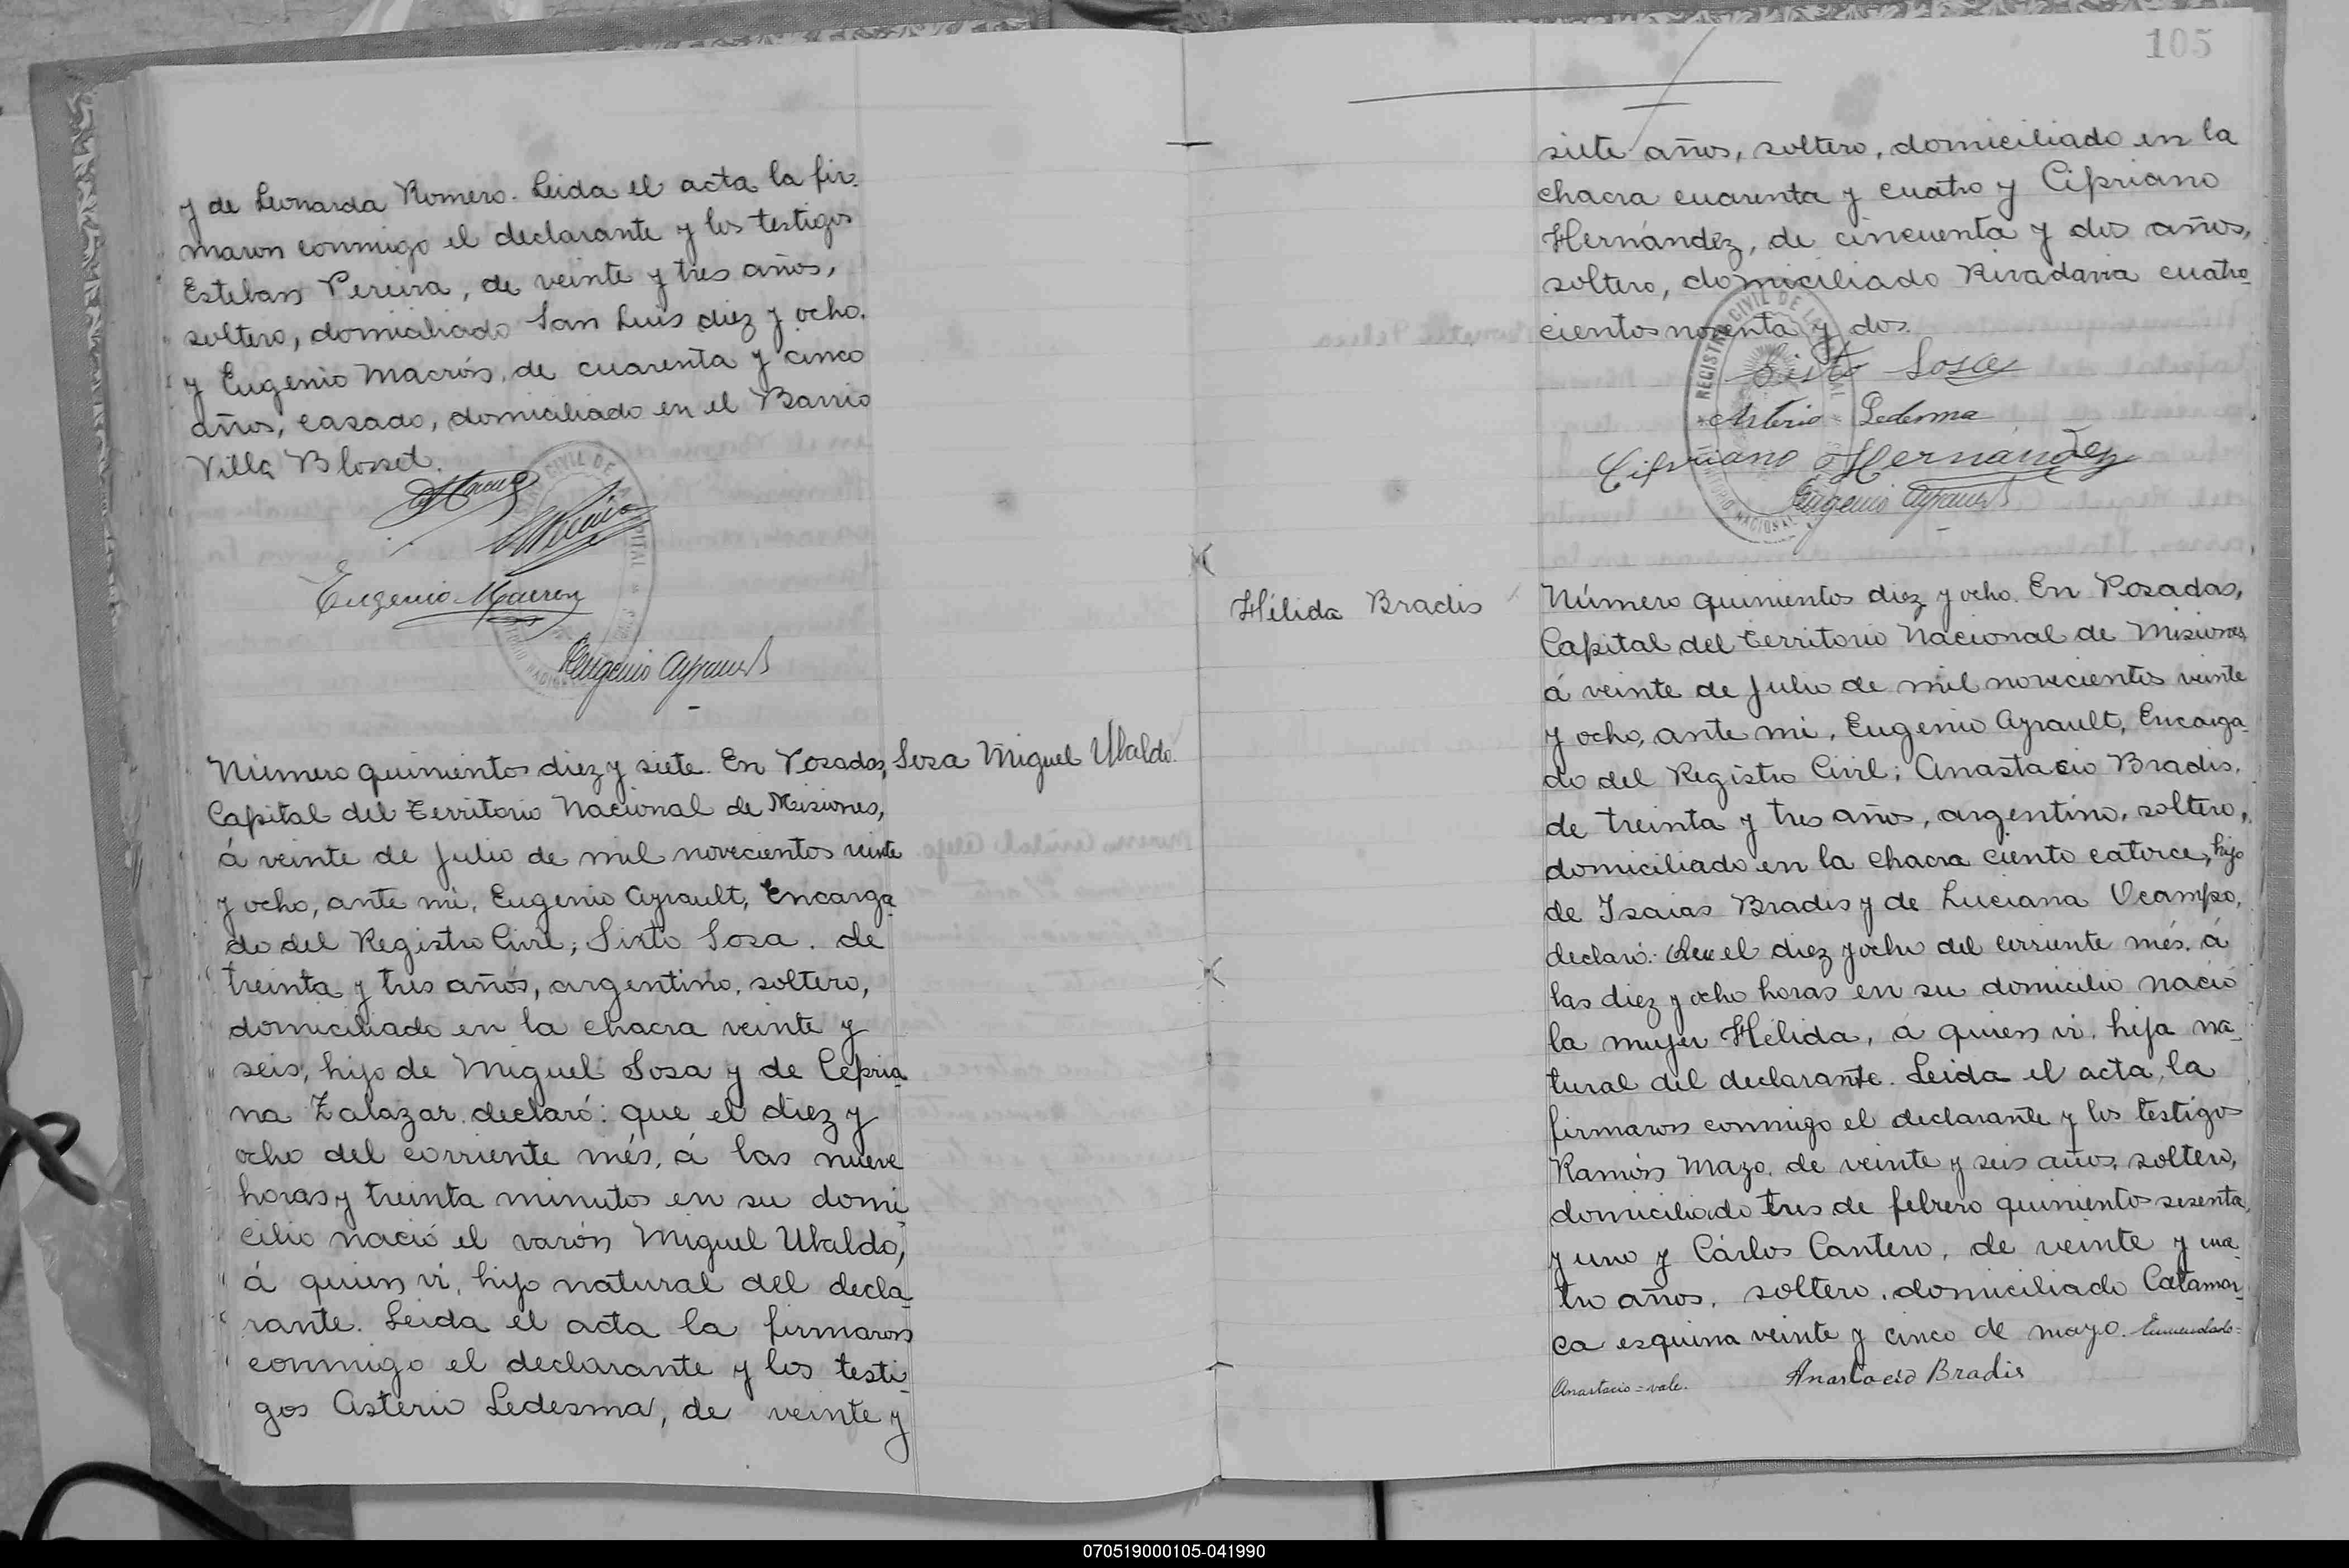 y de Leonarda Romero. Leida el acta la fir-
maron conmigo el declarante y los testigos
Esteban Pereira, de veinte y tres años,
soltero, domiciliado San Luis diez y ocho.
y Eugenio Macrón, de cuarenta y cinco
años, casado, domiciliado en el Barrio
Villa Blosset.
Eugenio Macron
Eugenio Ayrault
Número quinientos diez y siete. En Posadas,
Sosa Miguel Ubaldo.
Capital del Territorio Nacional de Misiones,
á veinte de Julio de mil novecientos veinte
y ocho, ante mi, Eugenio Ayrault, Encarga-
do del Registro Civil; Sixto Sosa. de
treinta y tres años, argentino, soltero,
domiciliado en la chacra veinte y
seis, hijo de Miguel Sosa y de Cepria-
na Zalazar. declaró: que el diez y
ocho del corriente més, á las nueve
horas y treinta minutos en su domi-
cilio nació el varón Miguel Ubaldo,
á quien vi, hijo natural del decla-
rante. Leida el acta la firmaron
conmigo el declarante y los testi-
gos Asterio Ledesma, de veinte y
105
siete años, soltero, domiciliado en la
chacra cuarenta y cuatro y Cipriano
Hernández, de cincuenta y dos años,
soltero, domiciliado Rivadavia cuatro-
cientos noventa y dos.
REGISTRO CIVIL DE LA CAPITAL
Sisto Sosa
Asterio Ledesma
Cipriano Hernández
Eugenio Ayrault
Hélida Bradis
Número quinientos diez y ocho. En Posadas,
Capital del Territorio Nacional de Misiones,
á veinte de Julio de mil novecientos veinte
y ocho, ante mi, Eugenio Ayrault, Encarga-
do del Registro Civil; Anastacio Bradis.
de treinta y tres años, argentino, soltero,
domiciliado en la chacra ciento catorce, hijo
de Isaias Bradis y de Luciana Ocampo,
declaró: Que el diez y ocho del corriente més. á
las diez y ocho horas en su domicilio nació
la mujer Hélida, á quien vi. hija na-
tural del declarante. Leida el acta, la
firmaron conmigo el declarante y los testigos
Ramón Mazo, de veinte y seis años, soltero,
domiciliado tres de febrero quinientos sesenta
y uno y Cárlos Cantero, de veinte y cua-
tro años, soltero, domiciliado Catamar-
ca esquina veinte y cinco de mayo. Enmendado=
Anastacio=vale.
Anastacio Bradis
070519000105-041990